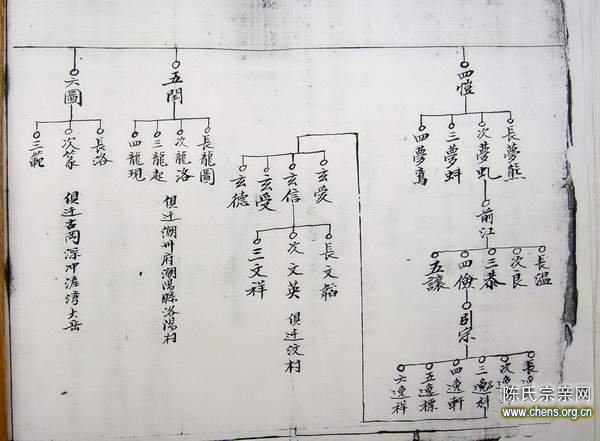 四愷
長夢熊
次夢虬
三夢蚪
四夢鶱
前江
長温
次良
三恭
四儉
五讓
引宗
四逸軒
五逸標
六逸祥
玄愛
玄信
玄受
玄德
長文韜
次文英 俱迁汶村
三文祥
五閏
長龍圖
次龍洛
三龍起
四龍現
俱迁潮州府潮陽縣洛陽村
六圖
長洛
次象
三範
俱迁古岡深冲滙湾大岳
陈氏宗亲网
www.chens.org.cn